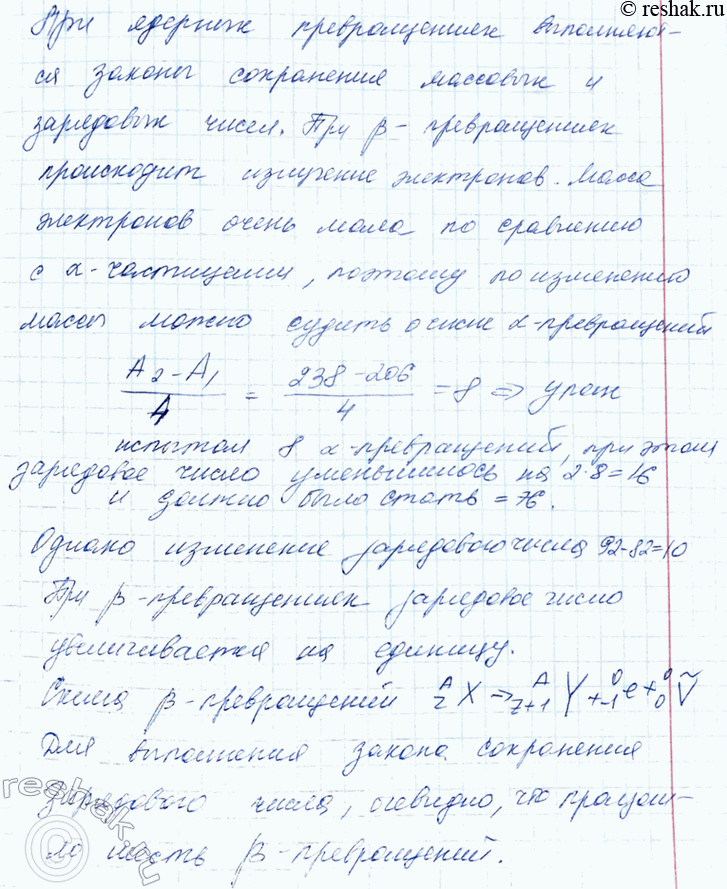 © reshak.ru
При ядерных превращениях выполняют-
ся законы сохранения массовых и
зарядовых чисел. При β-превращениях
происходит излучение электронов. Масса
электронов очень мала по сравнению
с α-частицами, поэтому по изменению
массы можно судить о числе α-превращений
A₂-A₁/4 = 238-206/4 = 8 ⇒ уран
испытал 8 α-превращений, при этом
зарядовое число уменьшилось на 2·8=16
и должно было стать = 76.
Однако изменение зарядового числа 92-82=10
При β-превращениях зарядовое число
увеличивается на единицу.
Схема β-превращений ᴬ_Z X ⇒ ᴬ_{Z+1} Y + ⁰_{-1} e + ⁰_0 ṽ
Для выполнения закона сохранения
зарядового числа, очевидно, что произош-
ло шесть β-превращений.
reshak.ru